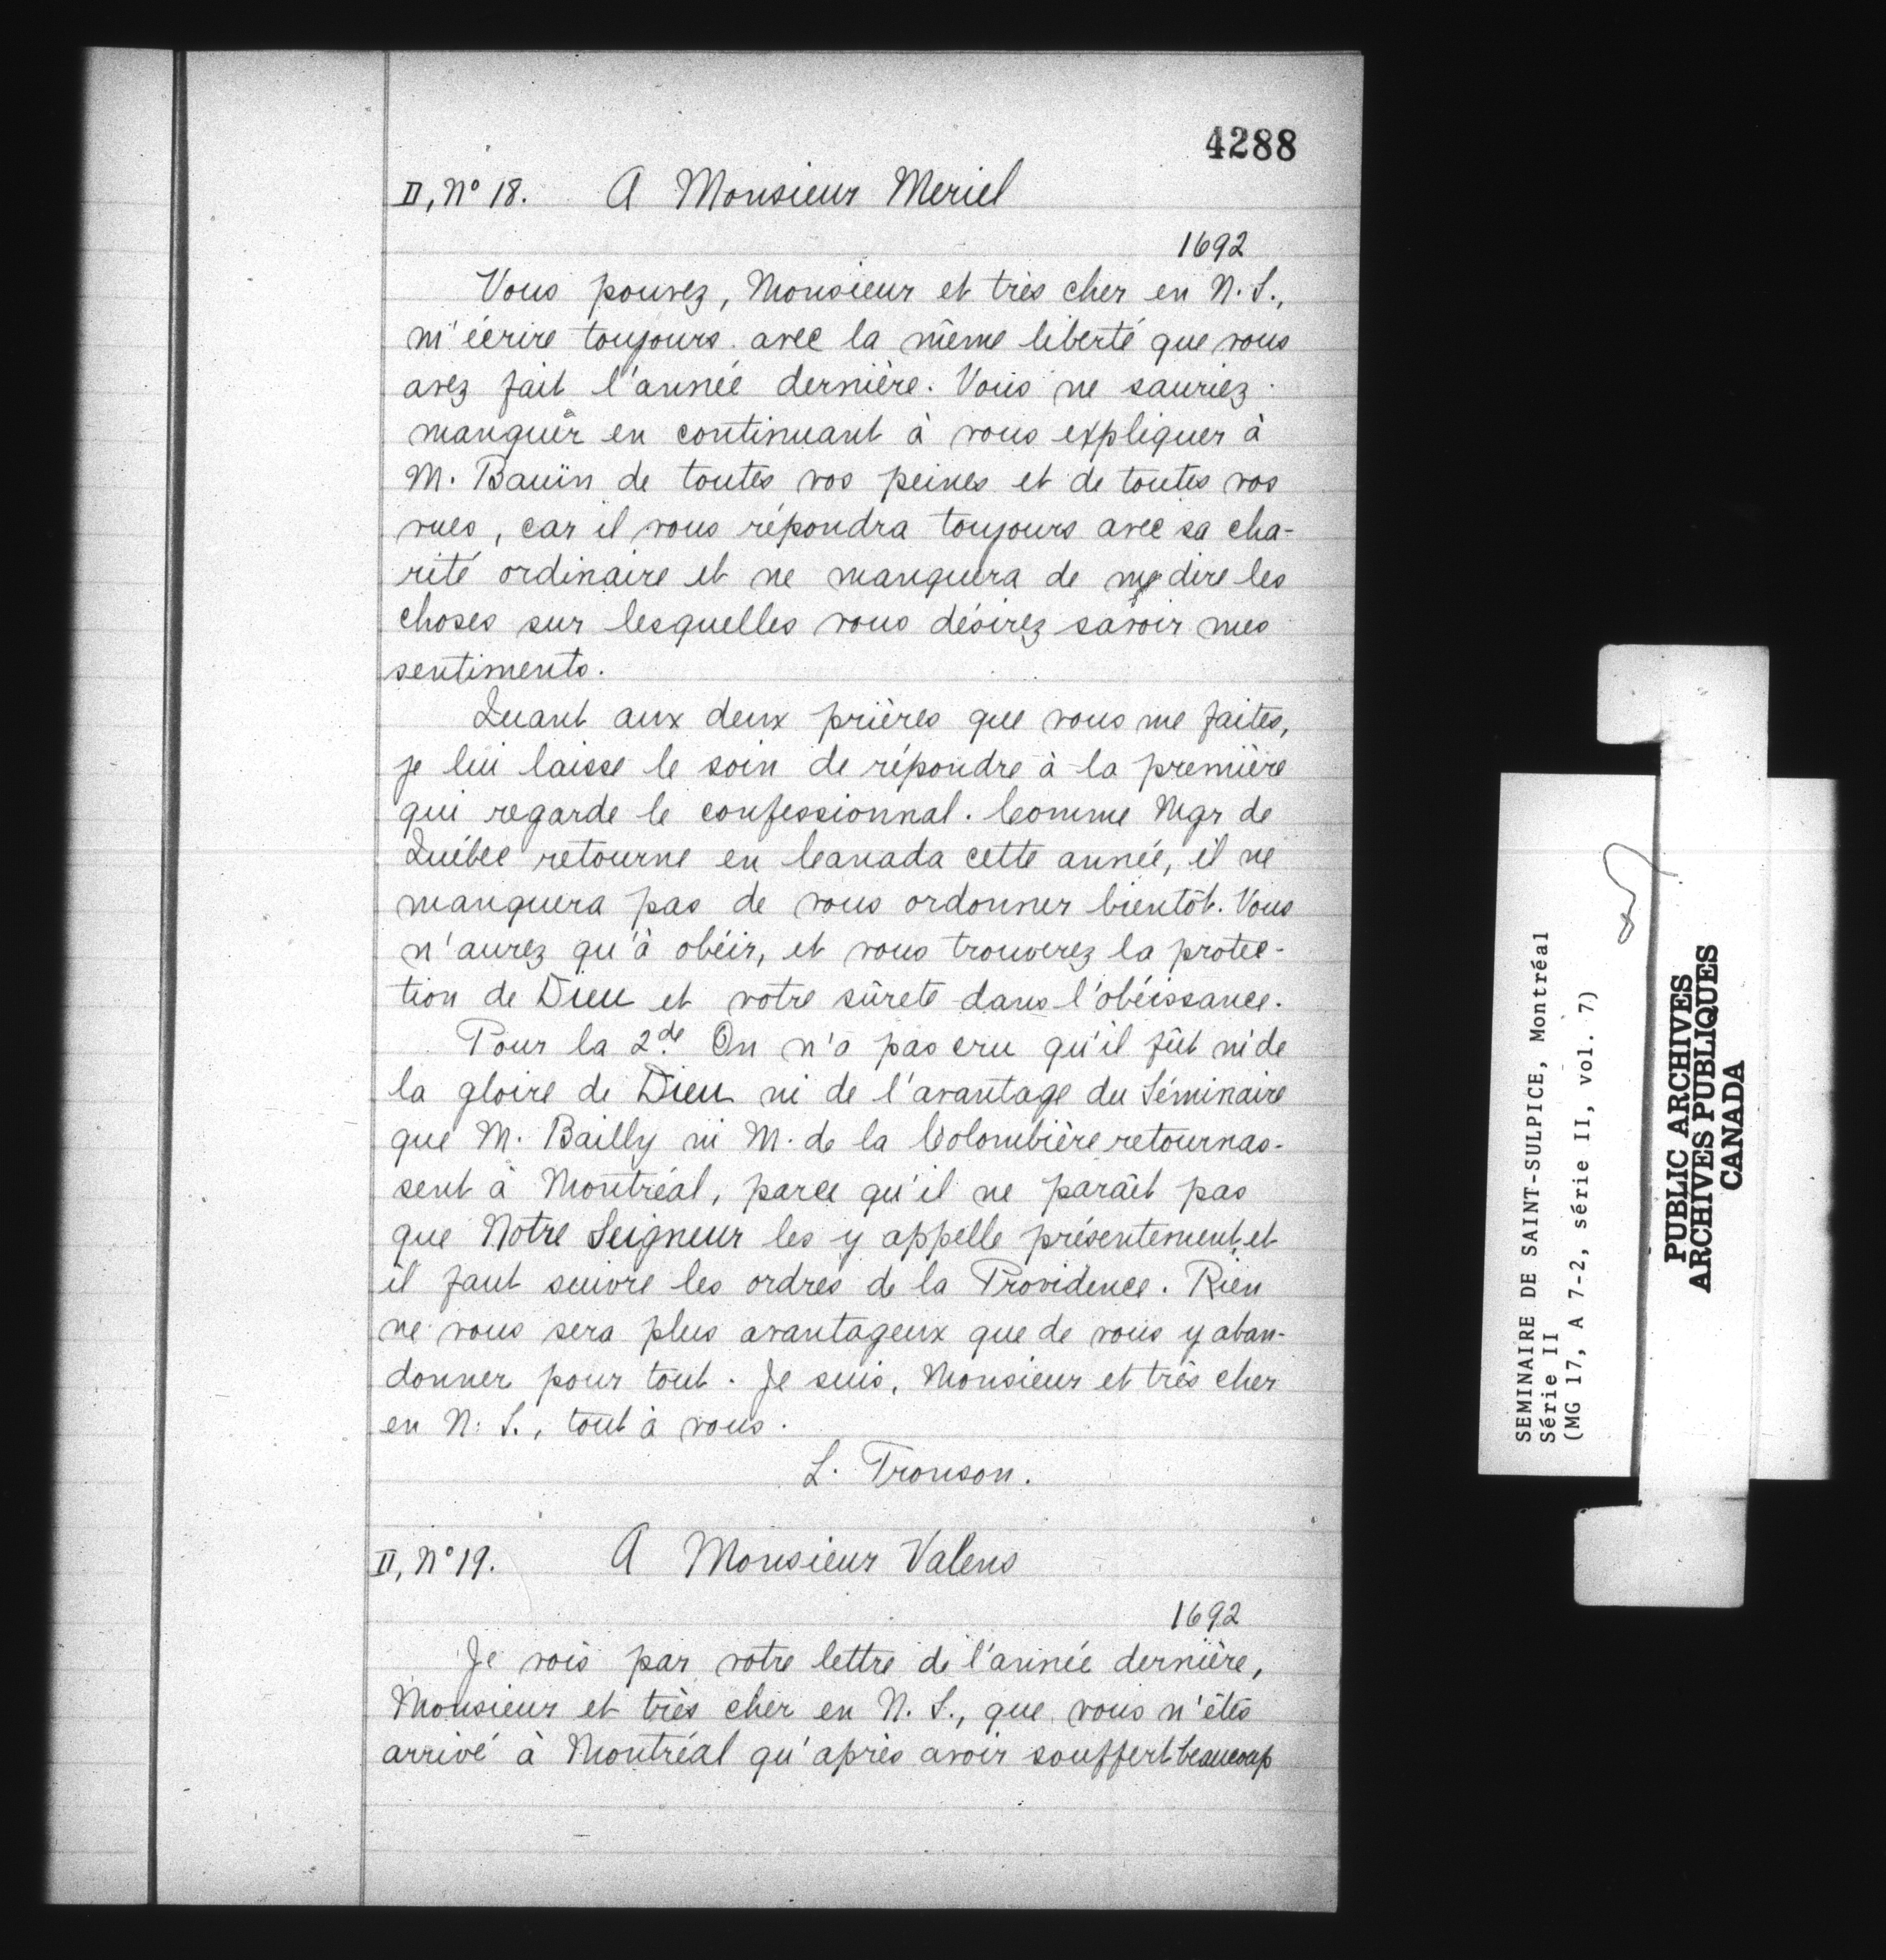 4288
II, N° 18. A Monsieur Meriel
1692
Vous pouvez, Monsieur et très cher en N. S.,
m'écrire toujours avec la même liberté que vous
avez fait l'année dernière. Vous ne sauriez
manquer en continuant à vous expliquer à
M. Baüin de toutes vos peines et de toutes vos
vues, car il vous répondra toujours avec sa cha-
rité ordinaire et ne manquera de me dire les
choses sur lesquelles vous désirez savoir mes
sentiments.
Quant aux deux prières que vous me faites,
je lui laisse le soin de répondre à la première
qui regarde le confessionnal. Comme Mgr de
Québec retourne en Canada cette année, il ne
manquera pas de vous ordonner bientôt. Vous
n'aurez qu'à obéir, et vous trouverez la protec-
tion de Dieu et votre sûreté dans l'obéissance.
Pour la 2de On n'a pas cru qu'il fût ni de
la gloire de Dieu ni de l'avantage du Séminaire
que M. Bailly ni M. de la Colombière retournas-
sent à Montréal, parce qu'il ne paraît pas
que Notre Seigneur les y appelle présentement, et
il faut suivre les ordres de la Providence. Rien
ne vous sera plus avantageux que de vous y aban-
donner pour tout. Je suis, Monsieur et très cher
en N. S., tout à vous.
L. Tronson.
II, N° 19. A Monsieur Valens
1692
Je vois par votre lettre de l'année dernière,
Monsieur et très cher en N. S., que vous n'êtes
arrivé à Montréal qu'après avoir souffert beaucoup
SEMINAIRE DE SAINT-SULPICE, Montréal
Série II
(MG 17, A 7-2, série II, vol. 7)
PUBLIC ARCHIVES
ARCHIVES PUBLIQUES
CANADA